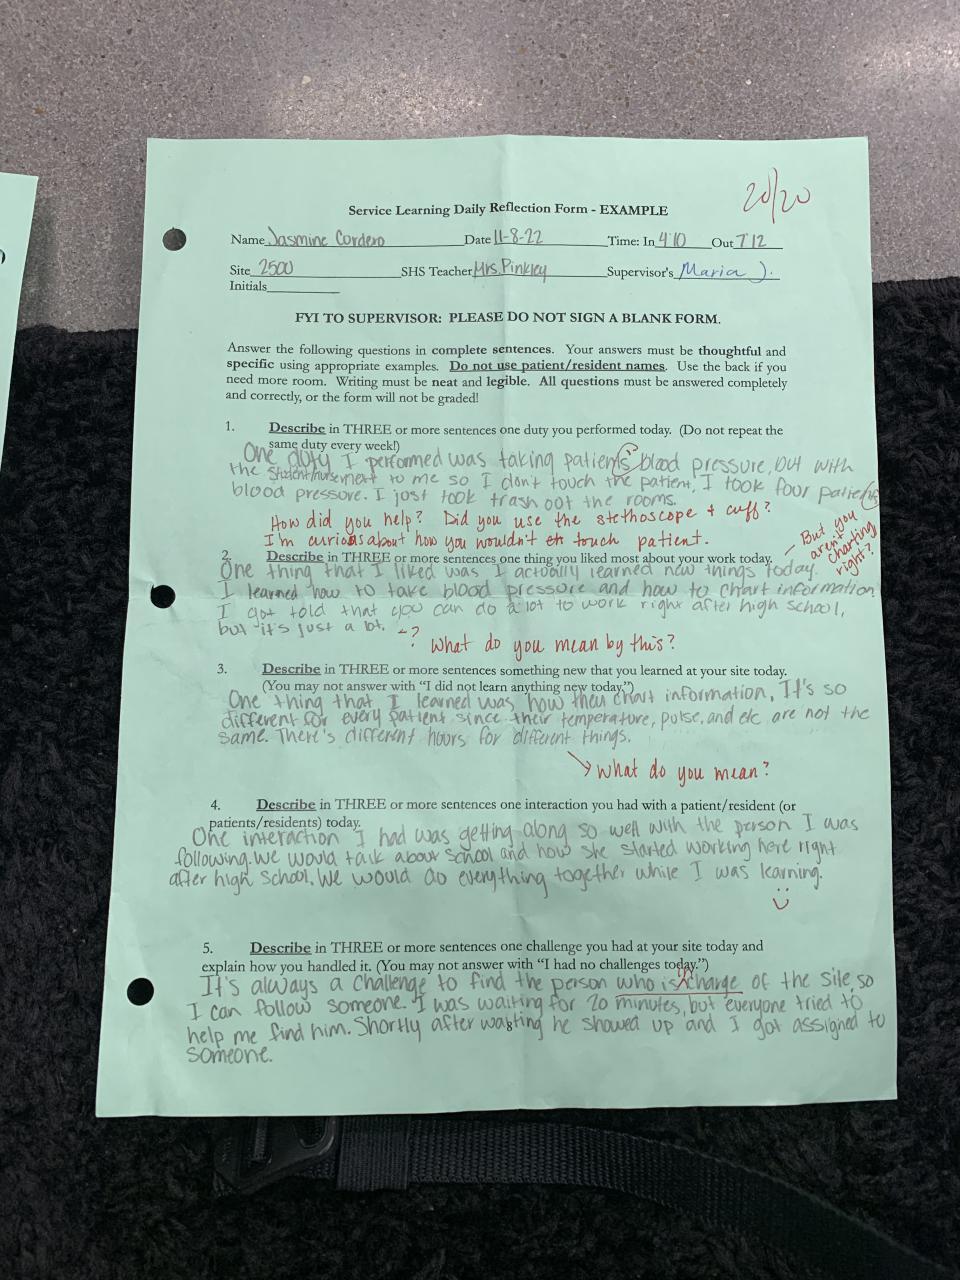 20/20
Service Learning Daily Reflection Form - EXAMPLE
Name Jasmine Cordero Date 11-8-22 Time: In 4:10 Out 7:12
Site 2500 SHS Teacher Mrs. Pinkley Supervisor's Maria J.
Initials
FYI TO SUPERVISOR: PLEASE DO NOT SIGN A BLANK FORM.
Answer the following questions in complete sentences. Your answers must be thoughtful and
specific using appropriate examples. Do not use patient/resident names. Use the back if you
need more room. Writing must be neat and legible. All questions must be answered completely
and correctly, or the form will not be graded!
1. Describe in THREE or more sentences one duty you performed today. (Do not repeat the
same duty every week!)
One duty I performed was taking patients blood pressure, but with
the student/nurse next to me so I don't touch the patient, I took four patients
blood pressure. I just took trash out the rooms.
How did you help? Did you use the stethoscope + cuff?
I'm curious about how you wouldn't touch patient.
2. Describe in THREE or more sentences one thing you liked most about your work today.
But you aren't charting right?
One thing that I liked was I actually learned new things today.
I learned how to take blood pressure and how to chart information.
I got told that you can do a lot to work right after high school,
but it's just a lot. -?
What do you mean by this?
3. Describe in THREE or more sentences something new that you learned at your site today.
(You may not answer with "I did not learn anything new today.")
One thing that I learned was how they chart information, It's so
different for every patient since their temperature, pulse, and etc are not the
same. There's different hours for different things.
What do you mean?
4. Describe in THREE or more sentences one interaction you had with a patient/resident (or
patients/residents) today.
One interaction I had was getting along so well with the person I was
following. We would talk about school and how she started working here right
after high school. We would do everything together while I was learning.
5. Describe in THREE or more sentences one challenge you had at your site today and
explain how you handled it. (You may not answer with "I had no challenges today.")
It's always a challenge to find the person who is in charge of the site, so
I can follow someone. I was waiting for 20 minutes, but everyone tried to
help me find him. Shortly after waiting he showed up and I got assigned to
someone.
8